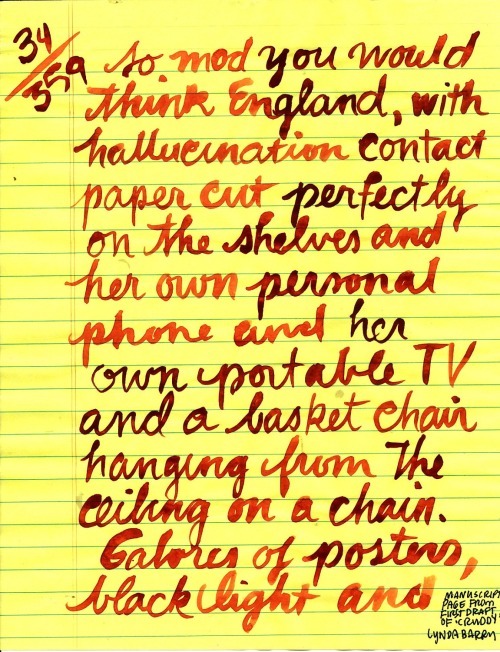 34/359
so mod you would
think England, with
hallucination contact
paper cut perfectly
on the shelves and
her own personal
phone and her
own portable TV
and a basket chair
hanging from the
ceiling on a chain.
Galores of posters,
black light and
MANUSCRIPT
PAGE FROM
FIRST DRAFT
OF 'CRUDDY'
LYNDA BARRY